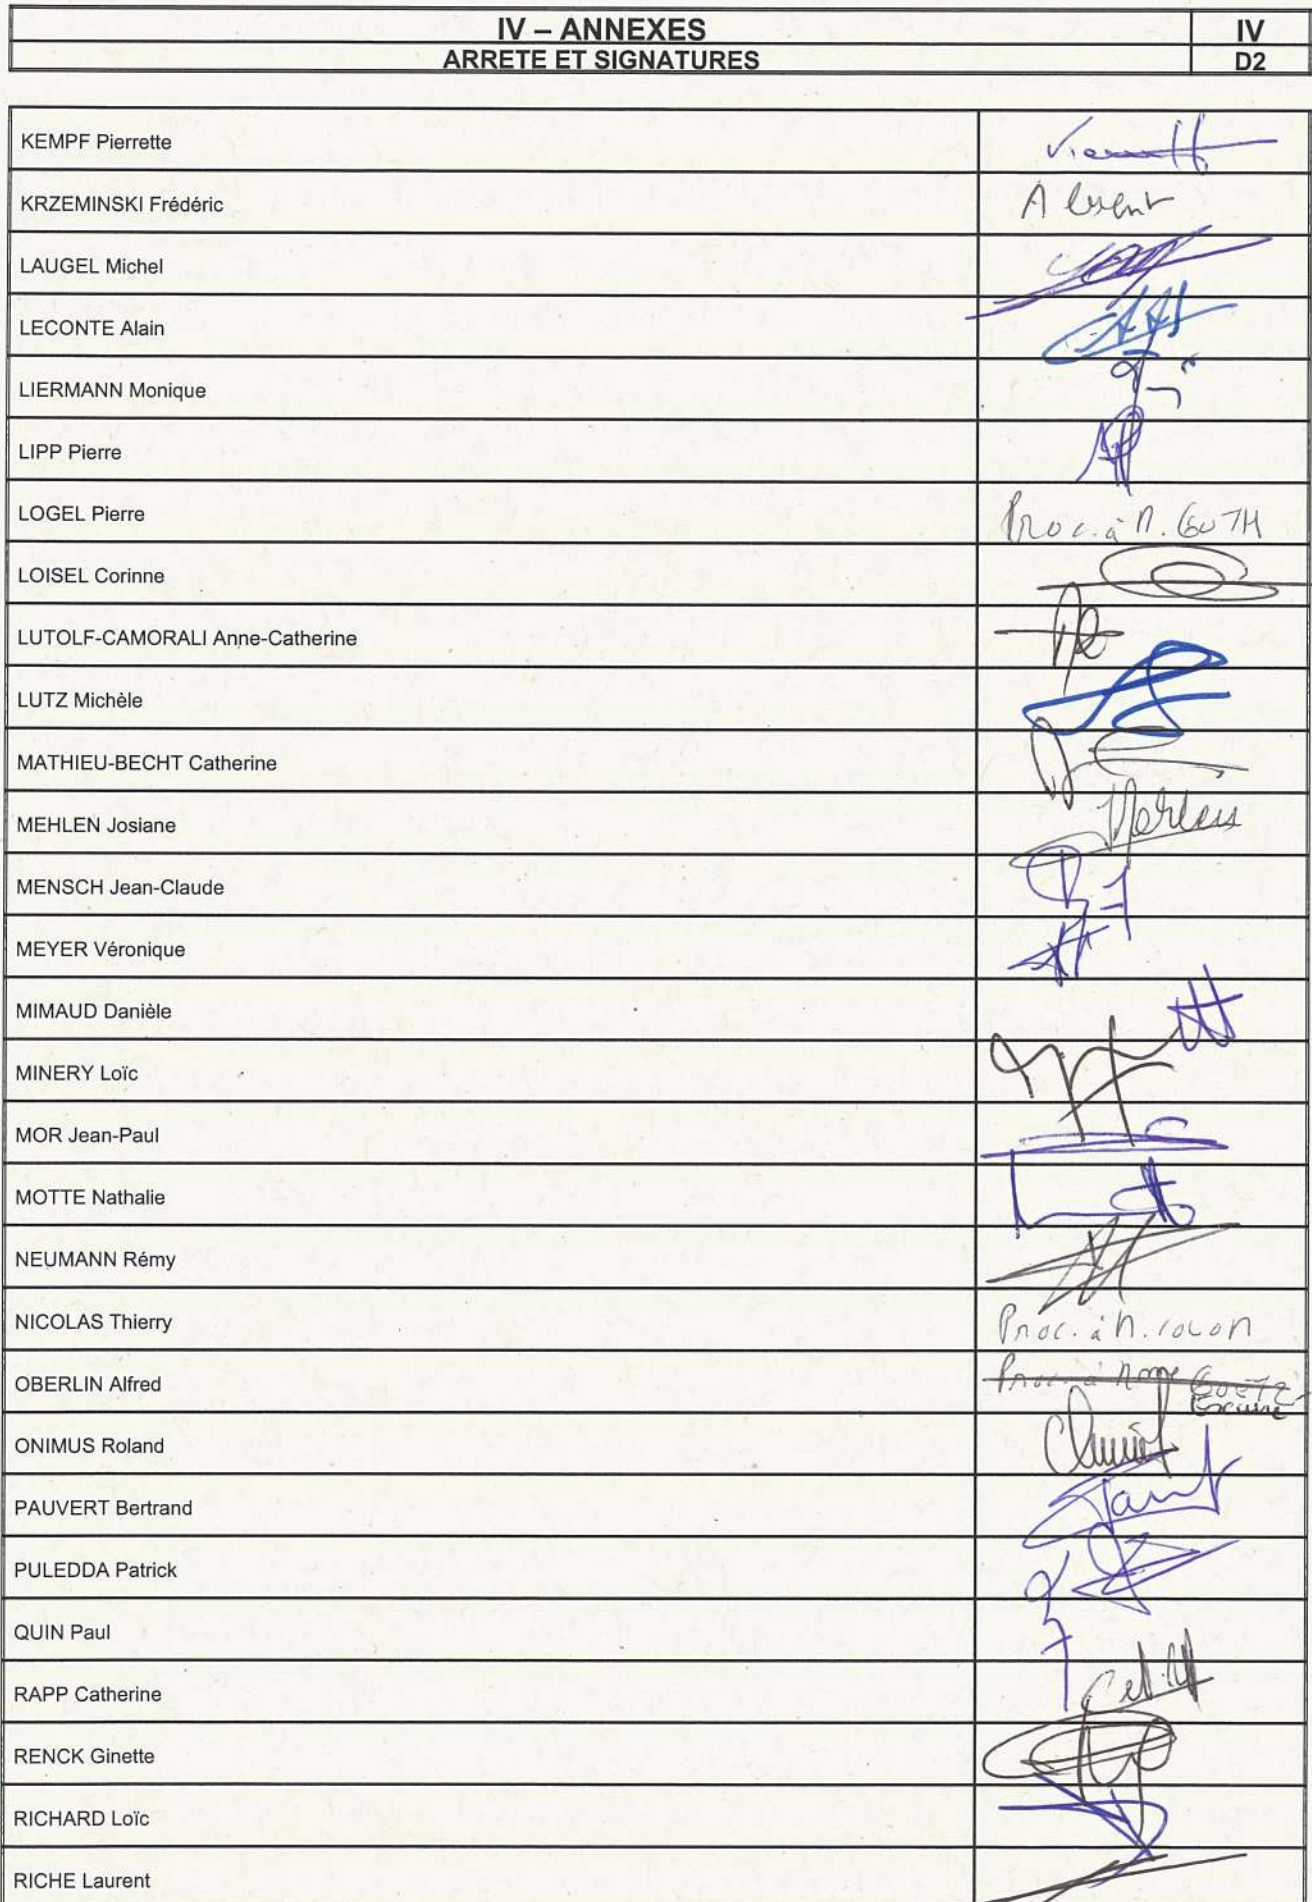 IV – ANNEXES
IV
ARRETE ET SIGNATURES
D2
KEMPF Pierrette
KRZEMINSKI Frédéric
Absent
LAUGEL Michel
LECONTE Alain
LIERMANN Monique
LIPP Pierre
LOGEL Pierre
Proc. à M. GUTH
LOISEL Corinne
LUTOLF-CAMORALI Anne-Catherine
LUTZ Michèle
MATHIEU-BECHT Catherine
MEHLEN Josiane
MENSCH Jean-Claude
MEYER Véronique
MIMAUD Danièle
MINERY Loïc
MOR Jean-Paul
MOTTE Nathalie
NEUMANN Rémy
NICOLAS Thierry
Proc. à M. COLOM
OBERLIN Alfred
Proc. à Mme GOETZ
Excusé
ONIMUS Roland
PAUVERT Bertrand
PULEDDA Patrick
QUIN Paul
RAPP Catherine
RENCK Ginette
RICHARD Loïc
RICHE Laurent